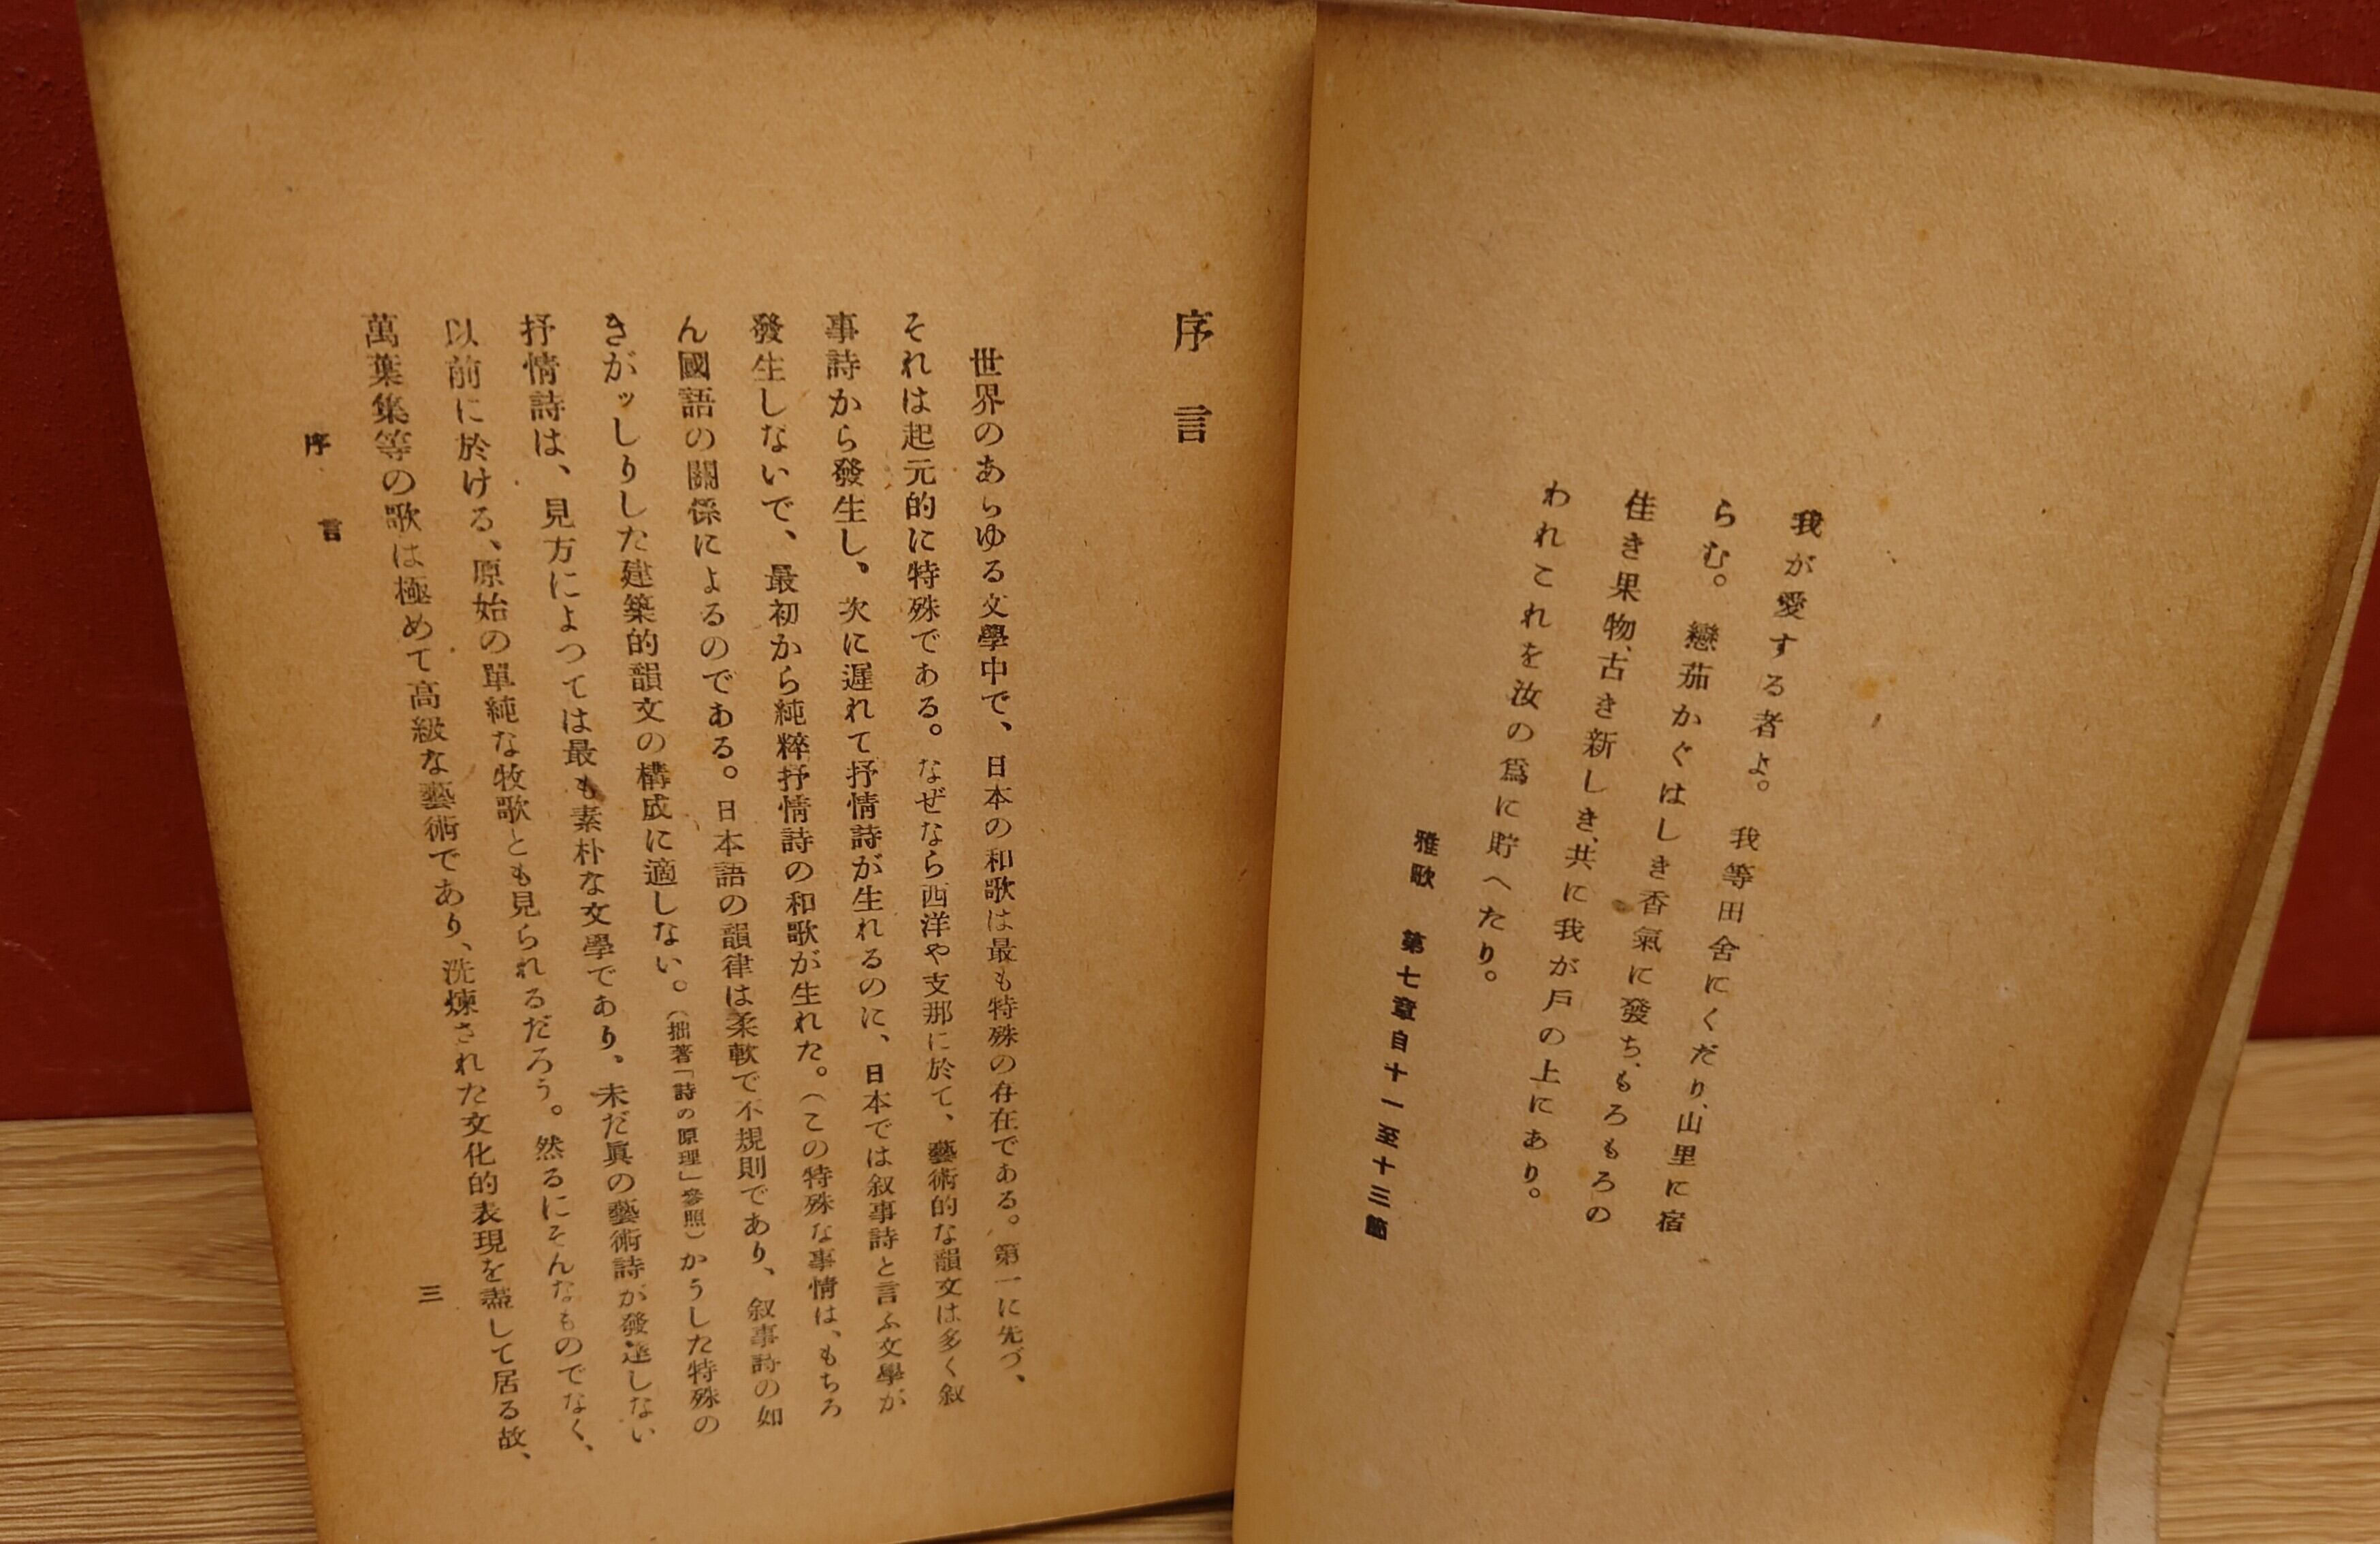 我が愛する者よ。 我等田舍にくだり、山里に宿
らむ。 戀茄かぐはしき香氣に發ち、もろもろの
佳き果物、古き新しき、共に我が戸の上にあり。
われこれを汝の爲に貯へたり。
雅歌 第七章自十一至十三節
序言
世界のあらゆる文學中で、日本の和歌は最も特殊の存在である。第一に先づ、
それは起元的に特殊である。なぜなら西洋や支那に於て、藝術的な韻文は多く叙
事詩から發生し、次に遲れて抒情詩が生れるのに、日本では叙事詩と言ふ文學が
發生しないで、最初から純粹抒情詩の和歌が生れた。(この特殊な事情は、もちろ
ん國語の關係によるのである。日本語の韻律は柔軟で不規則であり、叙事詩の如
きがッしりした建築的韻文の構成に適しない。(拙著「詩の原理」參照)かうした特殊の
抒情詩は、見方によつては最も素朴な文學であり、未だ眞の藝術詩が發達しない
以前に於ける、原始の單純な牧歌とも見られるだろう。然るにそんなものでなく、
萬葉集等の歌は極めて高級な藝術であり、洗煉された文化的表現を盡して居る故、
序言
三